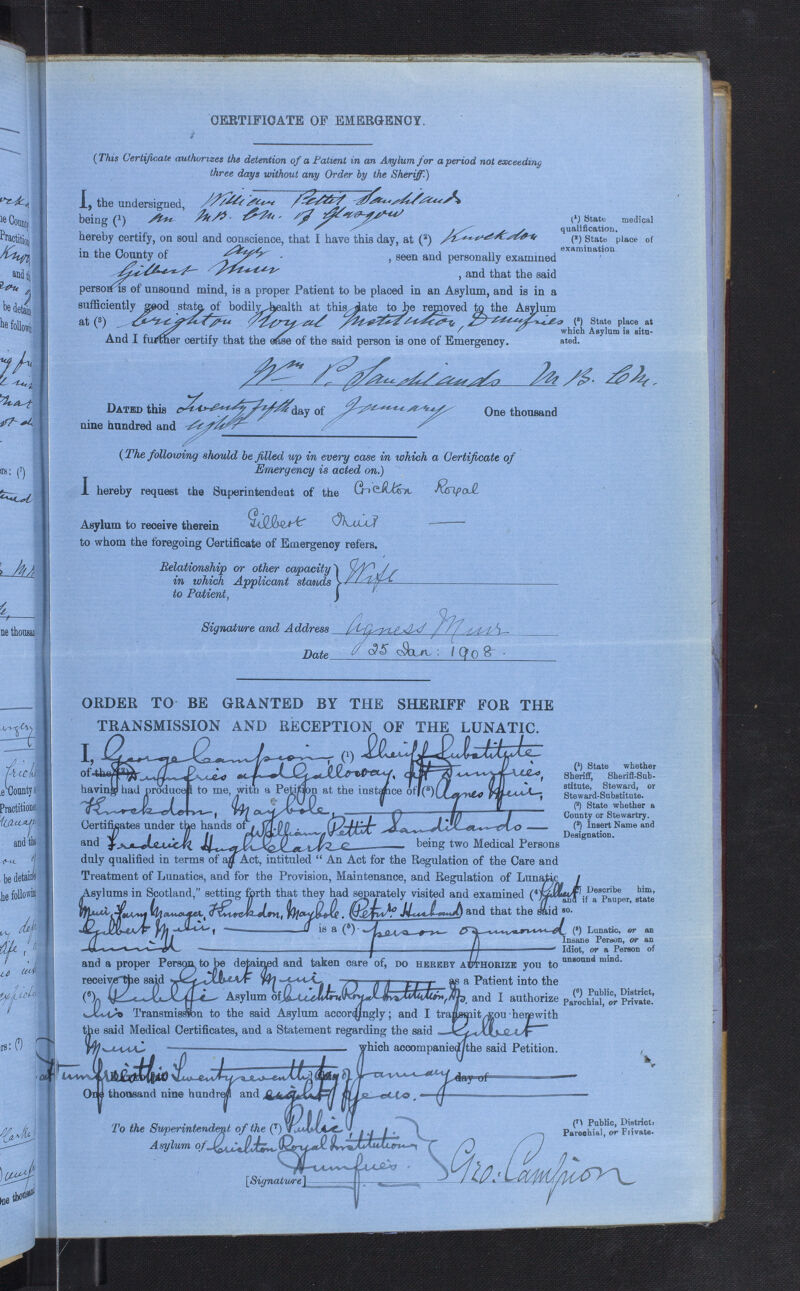 CERTIFICATE OF EMERGENCY.
(This Certificate authorizes the detention of a Patient in an Asylum for a period not exceeding
three days without any Order by the Sheriff.)
I, the undersigned, William Pettit Sandilands
being (¹) an M.B. C.M. of Glasgow
hereby certify, on soul and conscience, that I have this day, at (²) Knockdon
in the County of Ayr. , seen and personally examined
Gilbert Muir , and that the said
person is of unsound mind, is a proper Patient to be placed in an Asylum, and is in a
sufficiently good state of bodily health at this date to be removed to the Asylum
at (³) Crighton Royal Institution, Dumfries
And I further certify that the case of the said person is one of Emergency.
(¹) State medical
qualification.
(²) State place of
examination
(³) State place at
which Asylum is situ-
ated.
Wm P. Sandilands M.B. C.M.
DATED this Twenty fifth day of January One thousand
nine hundred and eight
(The following should be filled up in every case in which a Certificate of
Emergency is acted on.)
I hereby request the Superintendent of the Crichton Royal
Asylum to receive therein Gilbert Muir
to whom the foregoing Certificate of Emergency refers.
Relationship or other capacity
in which Applicant stands
to Patient,
Wife
Signature and Address Agness Muir
Date 25 Jan: 1908.
ORDER TO BE GRANTED BY THE SHERIFF FOR THE
TRANSMISSION AND RECEPTION OF THE LUNATIC.
I, George Campion, (¹) Sheriff Substitute
of the (²) Dumfries and Galloway, at Dumfries,
having had produced to me, with a Petition at the instance of (³) Agnes Muir,
Knockdon, Maybole,
Certificates under the hands of William Pettit Sandilands
and Frederick Hugh Clarke being two Medical Persons
duly qualified in terms of an Act, intituled "An Act for the Regulation of the Care and
Treatment of Lunatics, and for the Provision, Maintenance, and Regulation of Lunatic
Asylums in Scotland," setting forth that they had separately visited and examined (⁴) Gilbert
Muir, Farm Manager, Knockdon, Maybole. Petnrs Husband and that the said
Gilbert Muir, is a (⁵) person of unsound
mind
and a proper Person to be detained and taken care of, DO HEREBY AUTHORIZE you to
receive the said Gilbert Muir as a Patient into the
(⁶) Public Asylum of Crichton Royal Institution, Ds, and I authorize
his Transmission to the said Asylum accordingly; and I transmit you herewith
the said Medical Certificates, and a Statement regarding the said Gilbert
Muir which accompanied the said Petition.
at Dumfries this Twenty seventh day of January day of
One thousand nine hundred and eight years.
(¹) State whether
Sheriff, Sheriff-Sub-
stitute, Steward, or
Steward-Substitute.
(²) State whether a
County or Stewartry.
(³) Insert Name and
Designation.
(⁴) Describe him,
and if a Pauper, state
so.
(⁵) Lunatic, or an
Insane Person, or an
Idiot, or a Person of
unsound mind.
(⁶) Public, District,
Parochial, or Private.
To the Superintendent of the (⁷) Public
Asylum of Crichton Royal Institution
Dumfries.
(⁷) Public, District,
Parochial, or Private.
[Signature] Geo: Campion